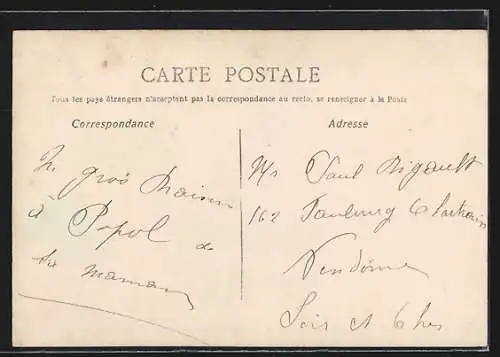 CARTE POSTALE
Tous les pays étrangers n'acceptent pas la correspondance au recto, se renseigner à la Poste
Correspondance
Adresse
Un gros
à Popol de
ta maman
Mr Paul Rigault
162 Faubourg Chartrain
Vendôme
Loir et Cher